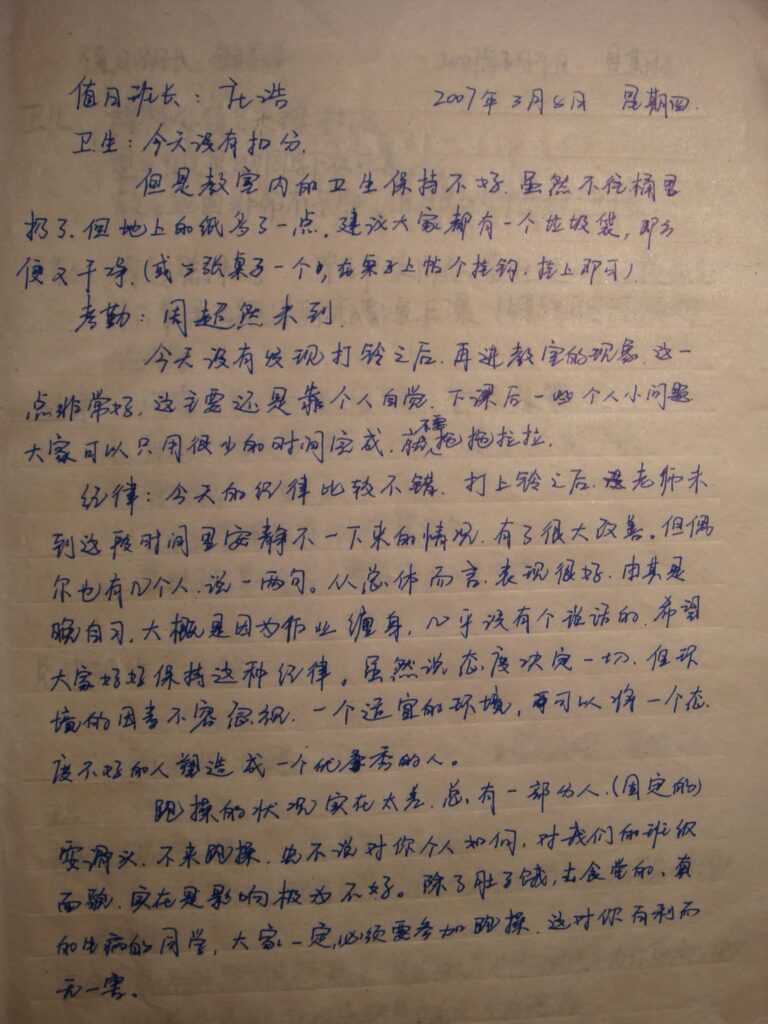 值日班长：庄浩 2007年3月8日 星期四.
卫生：今天没有扣分.
但是教室内的卫生保持不好.虽然不往桶里
扔了.但地上的纸多了一点.建议大家都有一个垃圾袋,即方
便又干净.(或三张桌子一个,在桌子上帖个挂钩,挂上即可)
考勤：周超然未到.
今天没有发现打铃之后.再进教室的现象.这一
点非常好.这主要还是靠个人自觉.下课后一些个人小问题
大家可以只用很少的时间完成.不要拖拖拉拉.
纪律：今天的纪律比较不错.打上铃之后.老师未
到这段时间里安静不一下来的情况.有了很大改善。但偶
尔也有几个人.说一两句。从总体而言.表现很好.由其是
晚自习.大概是因为作业缠身,几乎没有个说话的.希望
大家好好保持这种纪律。虽然说态度决定一切.但环
境的因素不容忽视.一个适宜的环境,可以将一个态
度不好的人塑造成一个优秀的人。
跑操的状况实在太差.总有一部分人.(固定的)
耍滑义.不来跑操.先不说对你个人如何,对我们的班级
面貌.实在是影响极为不好。除了肚子饿,去食堂的,真
的生病的同学,大家一定必须要参加跑操.这对你有利而
无一害。